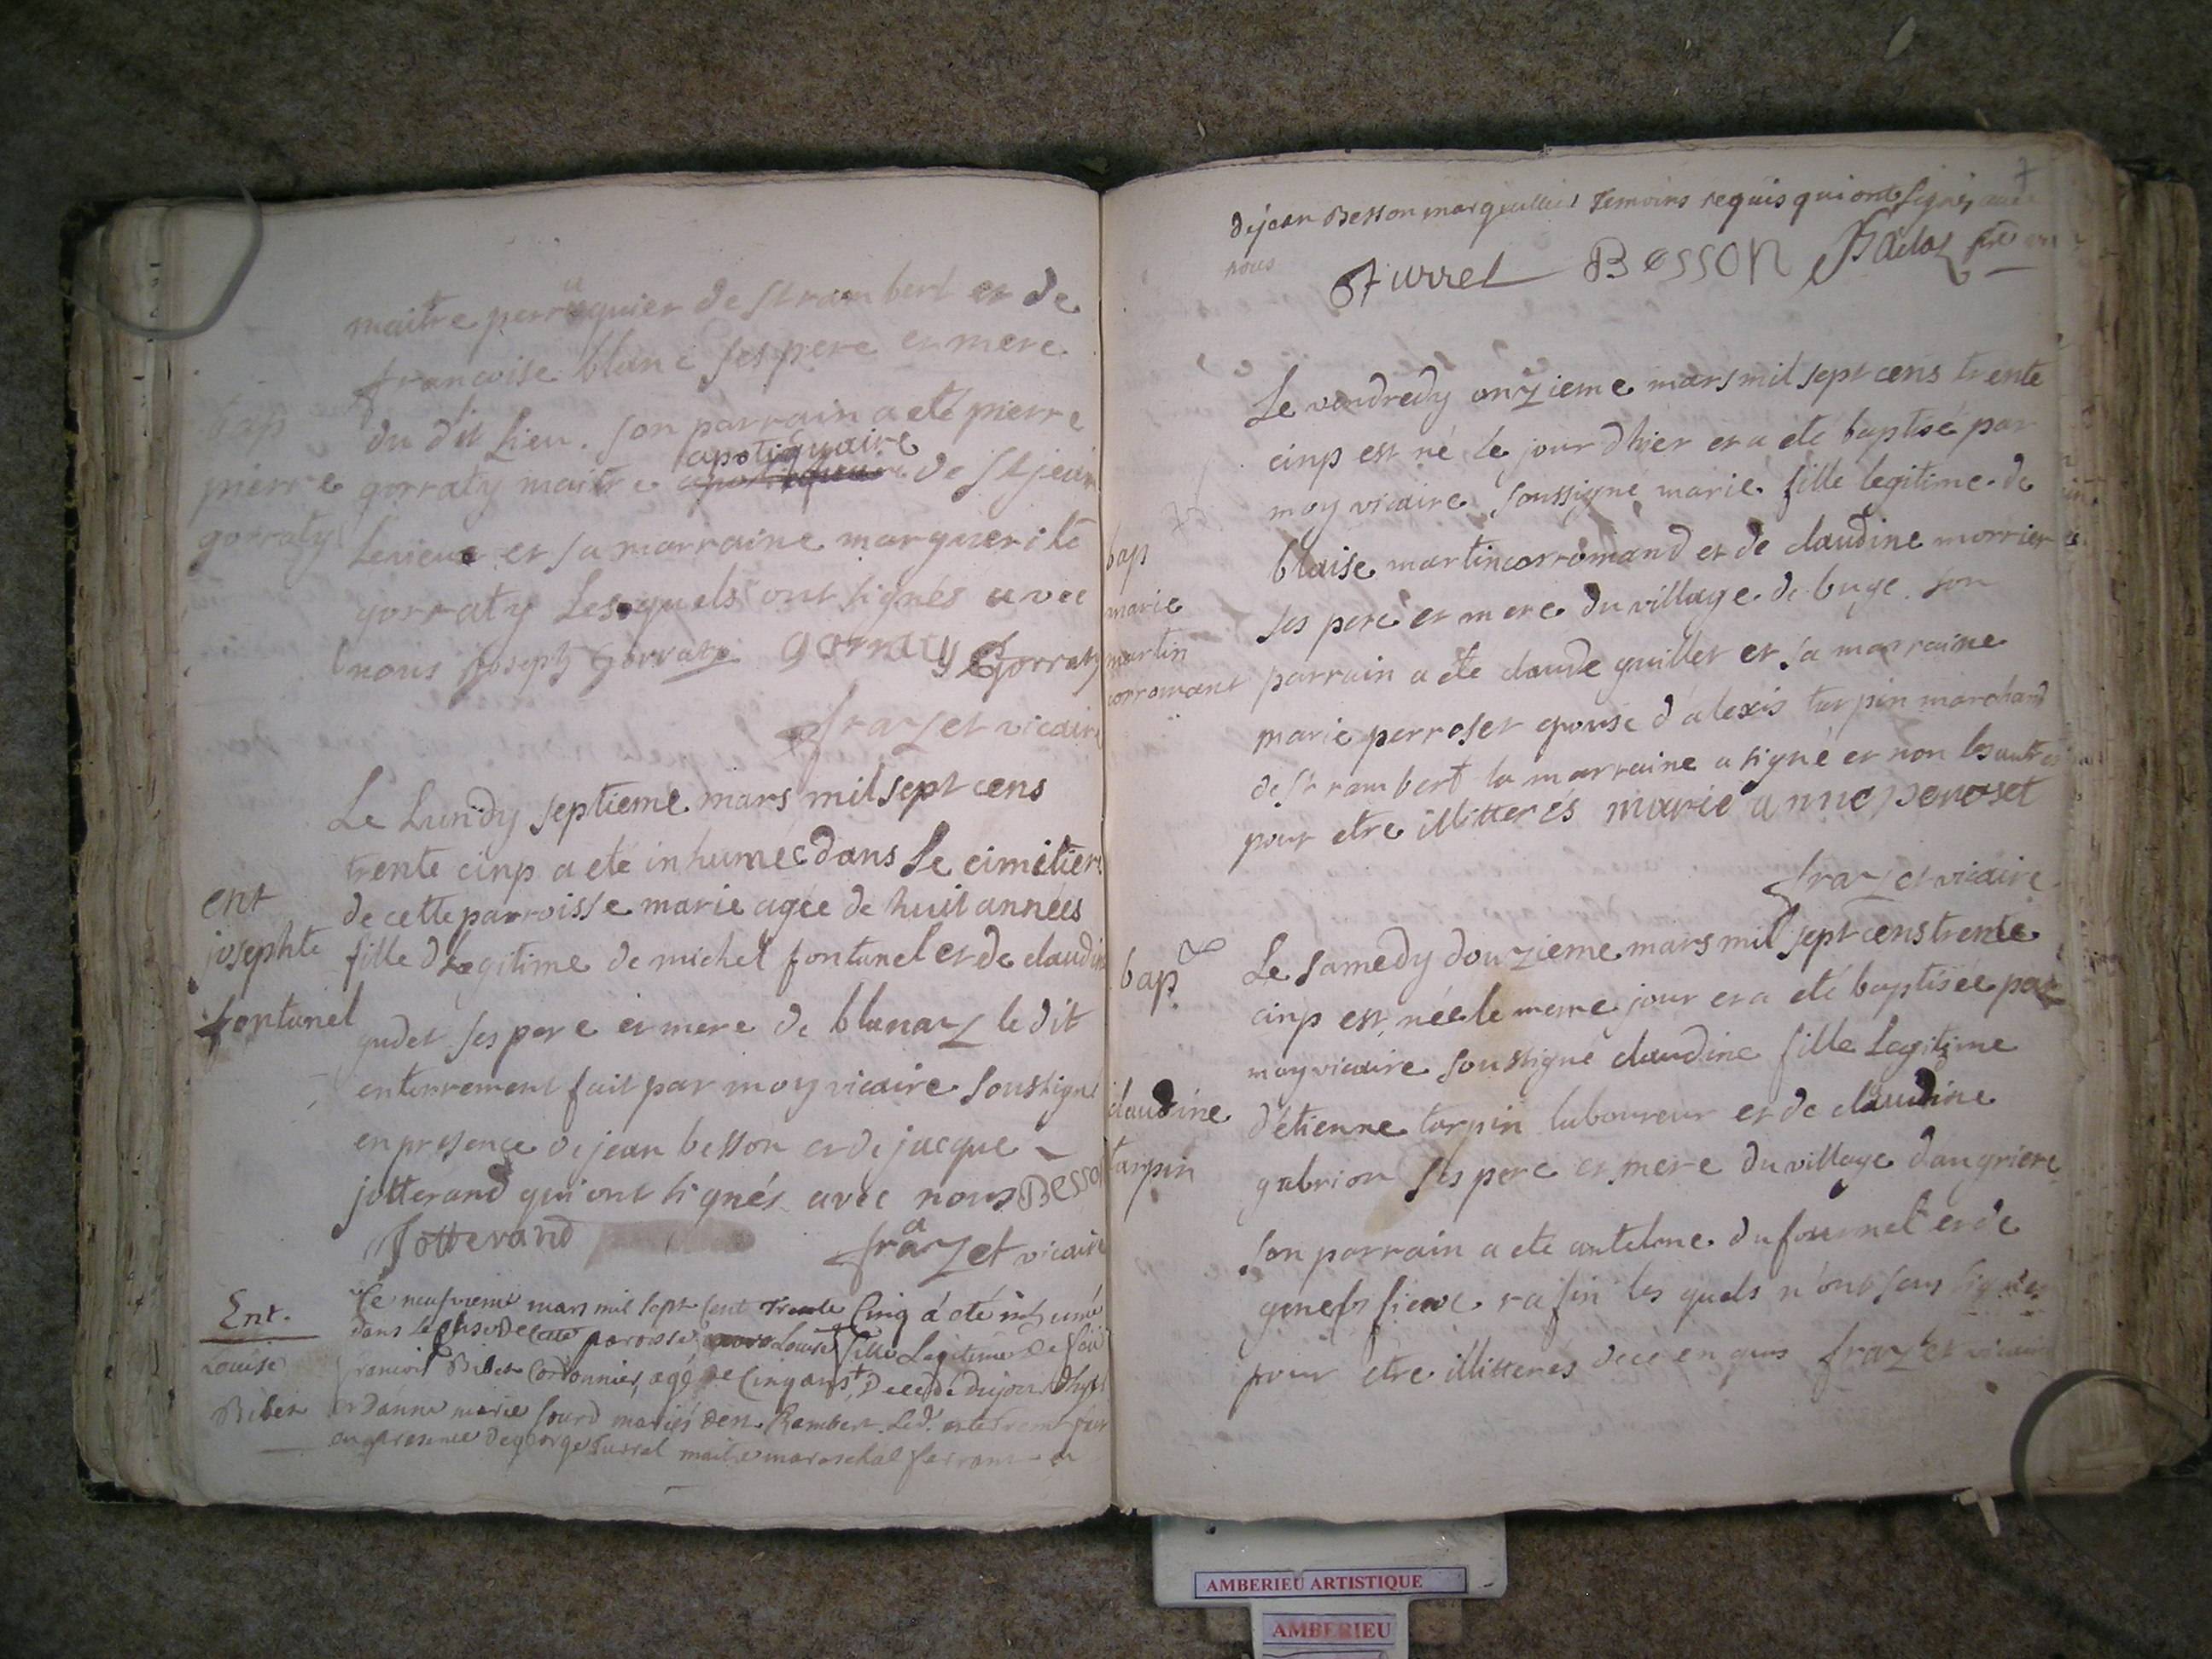 maitre perruquier de St rambert et de
francoise blanc ses pere et mere
bap
du dit Lieu. son parrain a eté pierre
apotiquaire
pierre
gorraty maitre de St jean
gorraty
Levieux et sa marraine marguerite
gorraty Lesquels ont signés avec
nous Joseph Gorraty gorraty Gorraty
frazet vicaire
Le Lundy septieme mars mil sept cens
trente cinp a eté inhumée dans Le cimetiere
ent
de cette parroisse marie agée de huit années
josephte
fille Legitime de michel fontanel et de claudine
fontanel
gudet ses pere et mere de blanaz le dit
enterrement fait par moy vicaire soussigné
en presence de jean besson et de jacque
jotterand qui ont signés avec nous Besson
Jotterand frazet vicaire
Ent.
Le neufvieme mars mil sept cent Trente Cinq a été inhumé
dans de cette paroisse Louise fille Legitime de
Louise
francois Bibet Cordonnier, agé de Cinq ans decedé du jour d'hyer
Bibet
et danne marie sourd mariés de St Rambert. Led. enterrement fait
en presence de george turrel maitre mareschal ferrant et
de jean Besson marguillier Temoins requis qui ont signés avec
nous
Turrel Besson
Le vendredy onzieme mars mil sept cens trente
cinp est né le jour d'hier et a eté baptisé par
moy vicaire soussigné marie fille legitime de
bap
blaise martin corromand et de claudine morrier
marie
ses pere et mere du village de buge son
martin
parrain a eté claude guillet et sa marraine
corromant
marie perroset epouse d'alexis tarpin marchand
de St rambert la marraine a signé et non les autres
pour etre illitterés marie anne peroset
frazet vicaire
bap.
Le samedy douzieme mars mil sept cens trente
cinp est née le meme jour et a eté baptisée par
moy vicaire soussigné claudine fille Legitime
claudine
d'étienne tarpin laboureur et de claudine
tarpin
gabrion ses pere et mere du village dangriere
son parrain a eté antelme dufournel et de
rasin les quels n'ont signés
pour etre illitteres frazet vicaire
AMBERIEU ARTISTIQUE
AMBERIEU